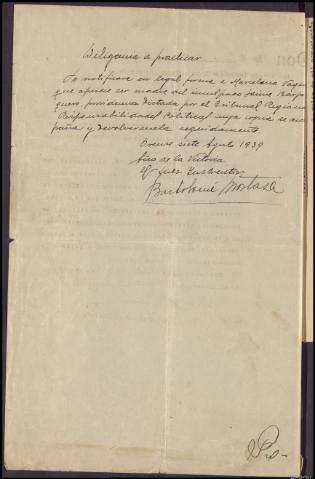 Diligencia a practicar
Se notificara en legal forma a Marcelina Vaque
que aparece ser madre del inculpado Jaime
quero, providencia dictada por el Tribunal Regional
Responsabilidades Politicas cuya copia se acom
paña y devolvera seguidamente.
siete Agosto 1939
Año de la Victoria
El Juez Instructor
Bartolome